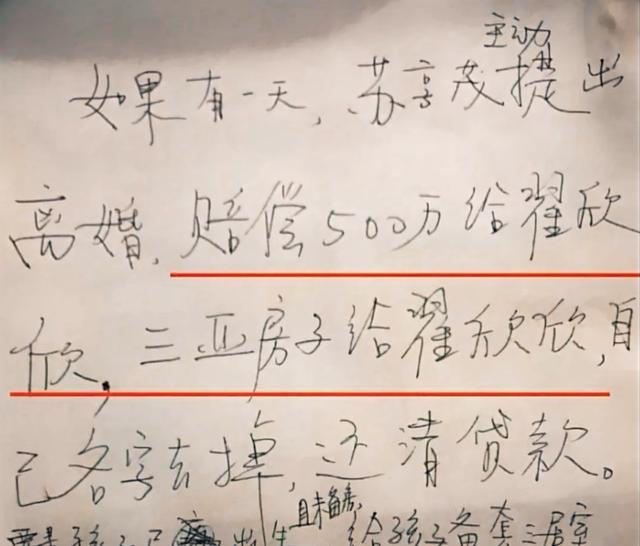 主动
如果有一天,苏享茂提出
离婚,赔偿500万给翟欣
欣,三亚房子给翟欣欣,自
己名字去掉,还清贷款。
且未备房,
孩子 出生 给孩子备套三居室